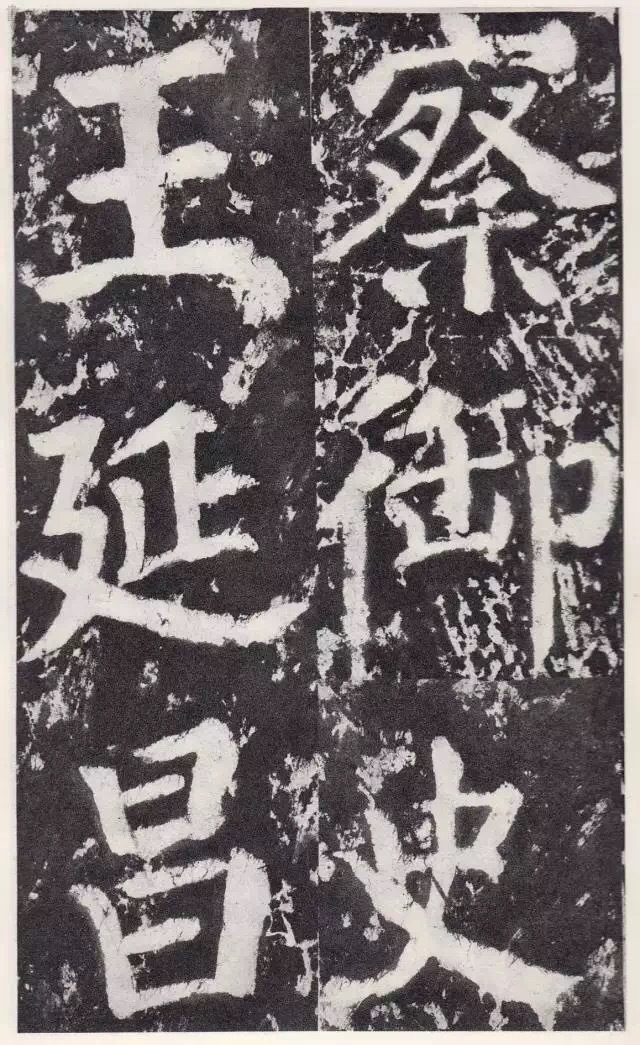 察御史
王延昌